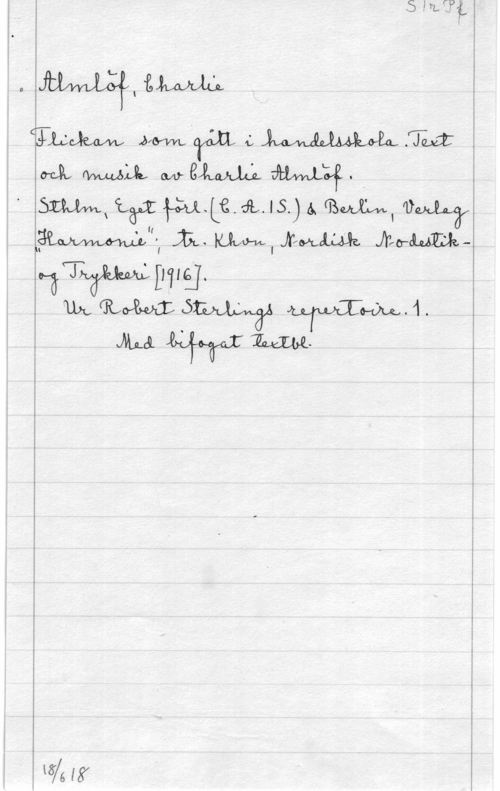 S1nPf
Almlöf, Charlie
Flickan som gått i handelsskola. Text
och musik av Charlie Almlöf.
Sthlm, Eget förl. (C.A. 15.) & Berlin, Verlag
"Harmonie"; tr. Khvn, Nordisk Nodestik-
og Trykkeri [1916].
Ur Robert Sterlings repertoire. 1.
Med bifogat textbl.
18/6 18